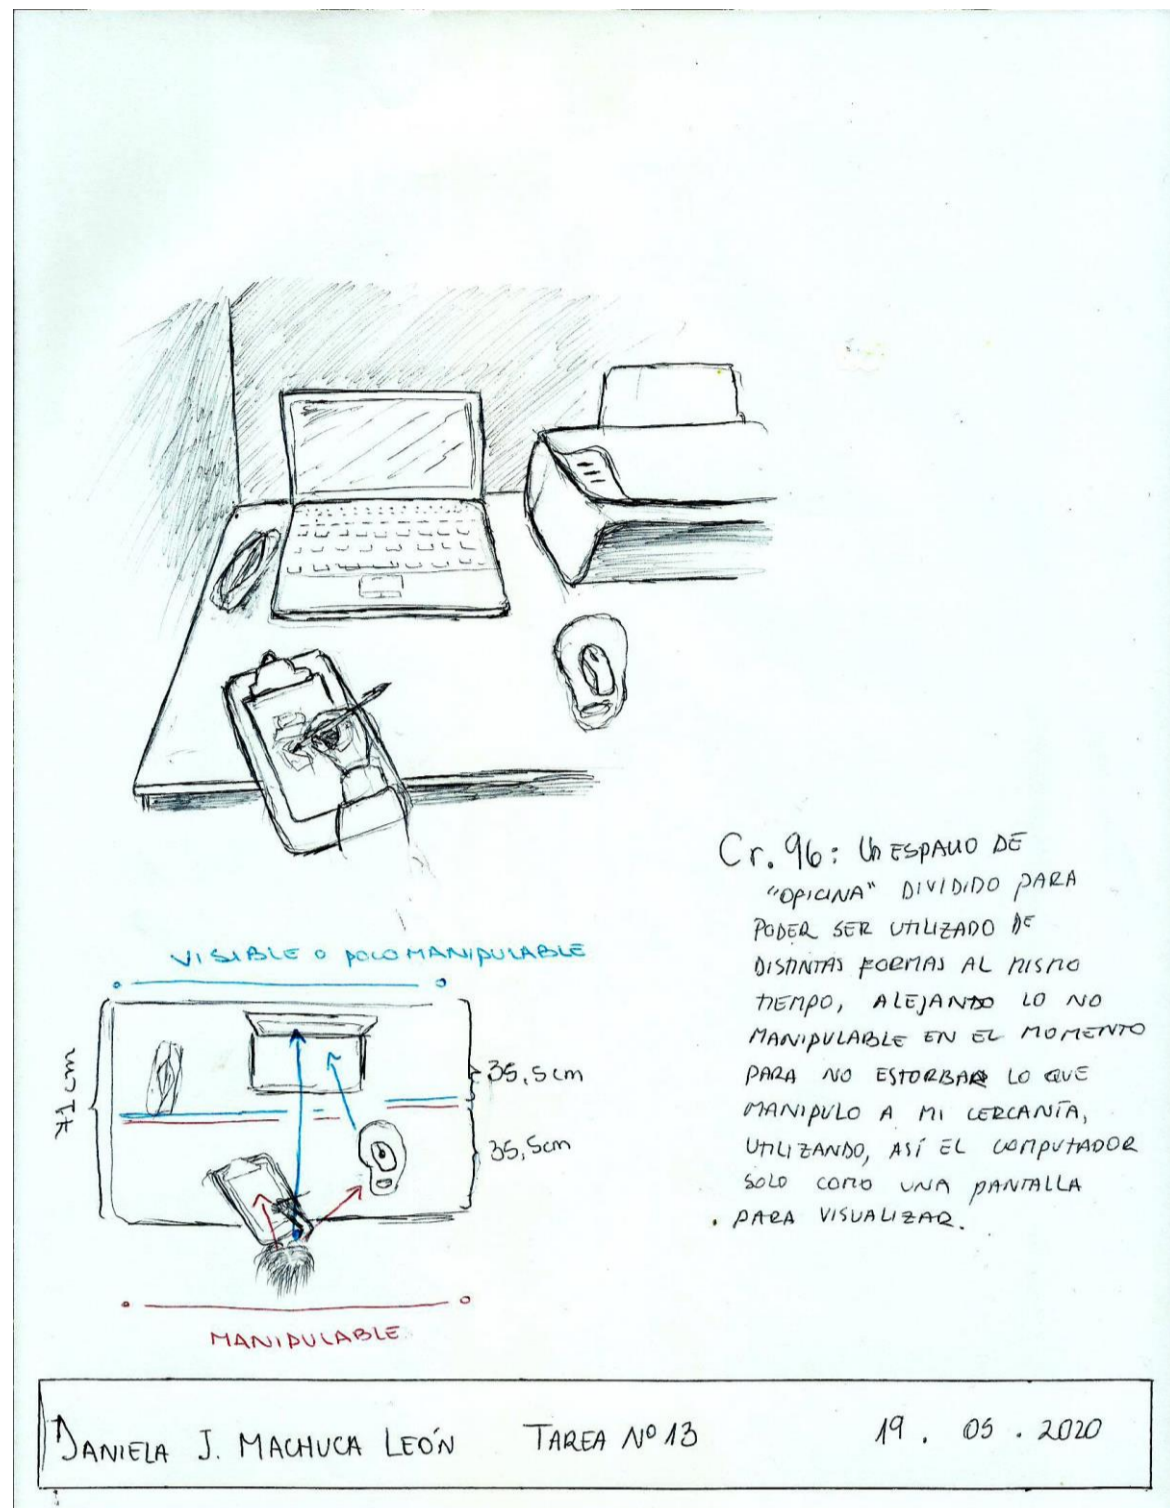 Cr. 96: Un ESPACIO DE
"OFICINA" DIVIDIDO PARA
PODER SER UTILIZADO DE
DISTINTAS FORMAS AL MISMO
TIEMPO, ALEJANDO LO NO
MANIPULABLE EN EL MOMENTO
PARA NO ESTORBAR LO QUE
MANIPULO A MI CERCANÍA,
UTILIZANDO, ASÍ EL COMPUTADOR
SOLO COMO UNA PANTALLA
PARA VISUALIZAR.
VISIBLE O POCO MANIPULABLE
71cm
35,5cm
35,5cm
MANIPULABLE
DANIELA J. MACHUCA LEÓN TAREA Nº 13 19. 05. 2020